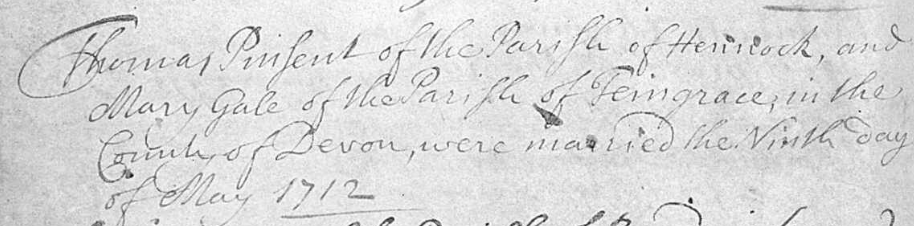 Thomas Pinsent of the Parish of Hennock, and
Mary Gale of the Parish of Teingrace, in the
County of Devon, were married the Ninth day
of May 1712